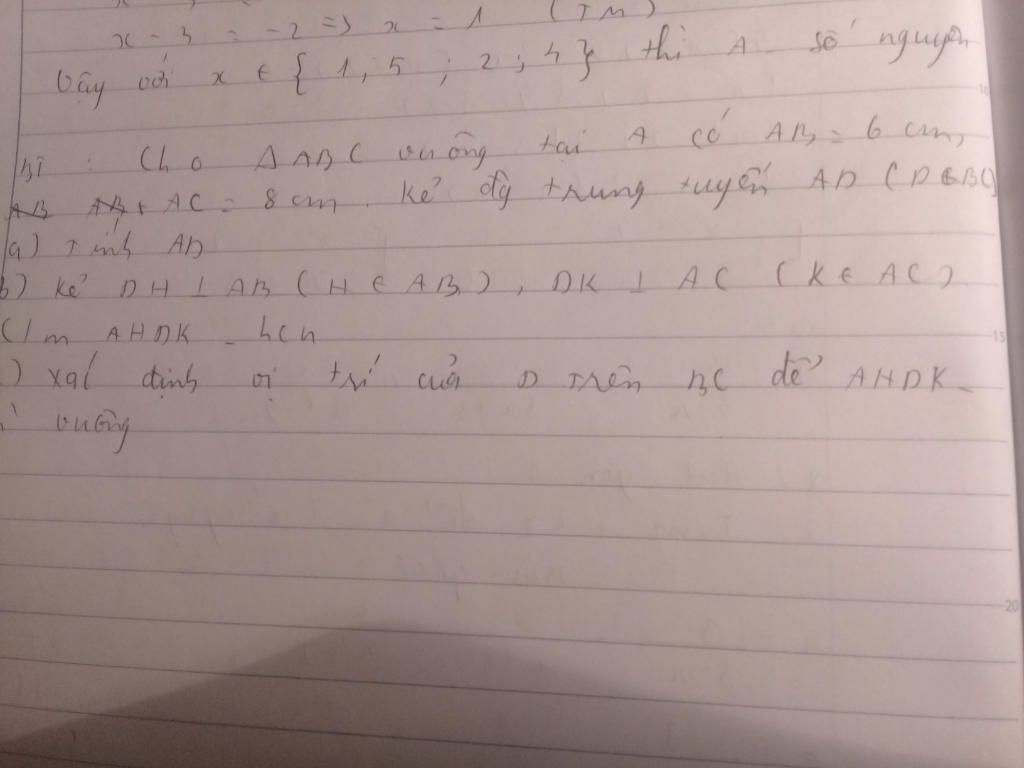 x - 3 = -2 => x = 1 (TM)
Vậy với x ∈ { 1, 5 ; 2 ; 4 } thì A - số nguyên
BI : Cho Δ ABC vuông tại A có AB = 6 cm,
AC = 8 cm. Kẻ đg trung tuyến AD (D ∈ BC)
a) Tính AD
b) Kẻ DH ⊥ AB (H ∈ AB), DK ⊥ AC (K ∈ AC)
C/m AHDK - hcn
) Xác định vị trí của D trên BC để AHDK -
vuông
10
15
20